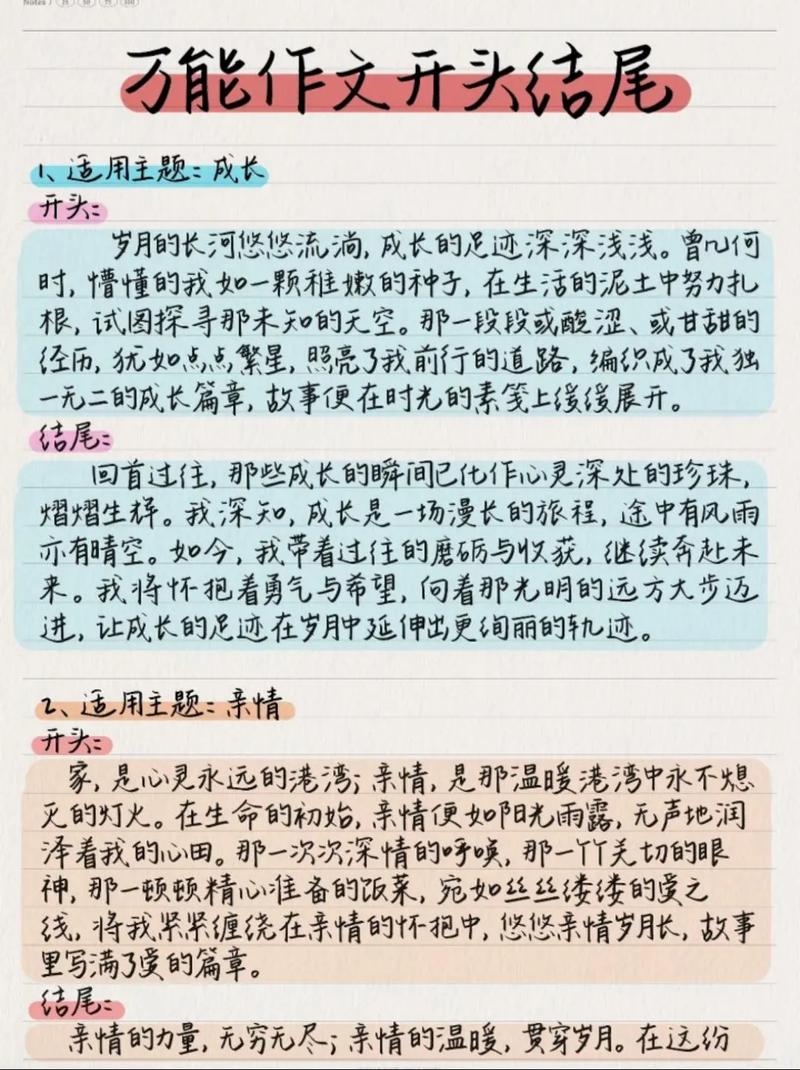 Notes
万能作文开头结尾
1、适用主题：成长
开头：
岁月的长河悠悠流淌，成长的足迹深深浅浅。曾几何
时，懵懂的我如一颗稚嫩的种子，在生活的泥土中努力扎
根，试图探寻那未知的天空。那一段段或酸涩、或甘甜的
经历，犹如点点繁星，照亮了我前行的道路，编织成了我独
一无二的成长篇章，故事便在时光的素笺上缓缓展开。
结尾：
回首过往，那些成长的瞬间已化作心灵深处的珍珠，
熠熠生辉。我深知，成长是一场漫长的旅程，途中有风雨
亦有晴空。如今，我带着过往的磨砺与收获，继续奔赴未
来。我将怀抱着勇气与希望，向着那光明的远方大步迈
进，让成长的足迹在岁月中延伸出更绚丽的轨迹。
2、适用主题：亲情
开头：
家，是心灵永远的港湾；亲情，是那温暖港湾中永不熄
灭的灯火。在生命的初始，亲情便如阳光雨露，无声地润
泽着我的心田。那一次次深情的呼唤，那一个个关切的眼
神，那一顿顿精心准备的饭菜，宛如丝丝缕缕的爱之
线，将我紧紧缠绕在亲情的怀抱中，悠悠亲情岁月长，故事
里写满了爱的篇章。
结尾：
亲情的力量，无穷无尽；亲情的温暖，贯穿岁月。在这纷